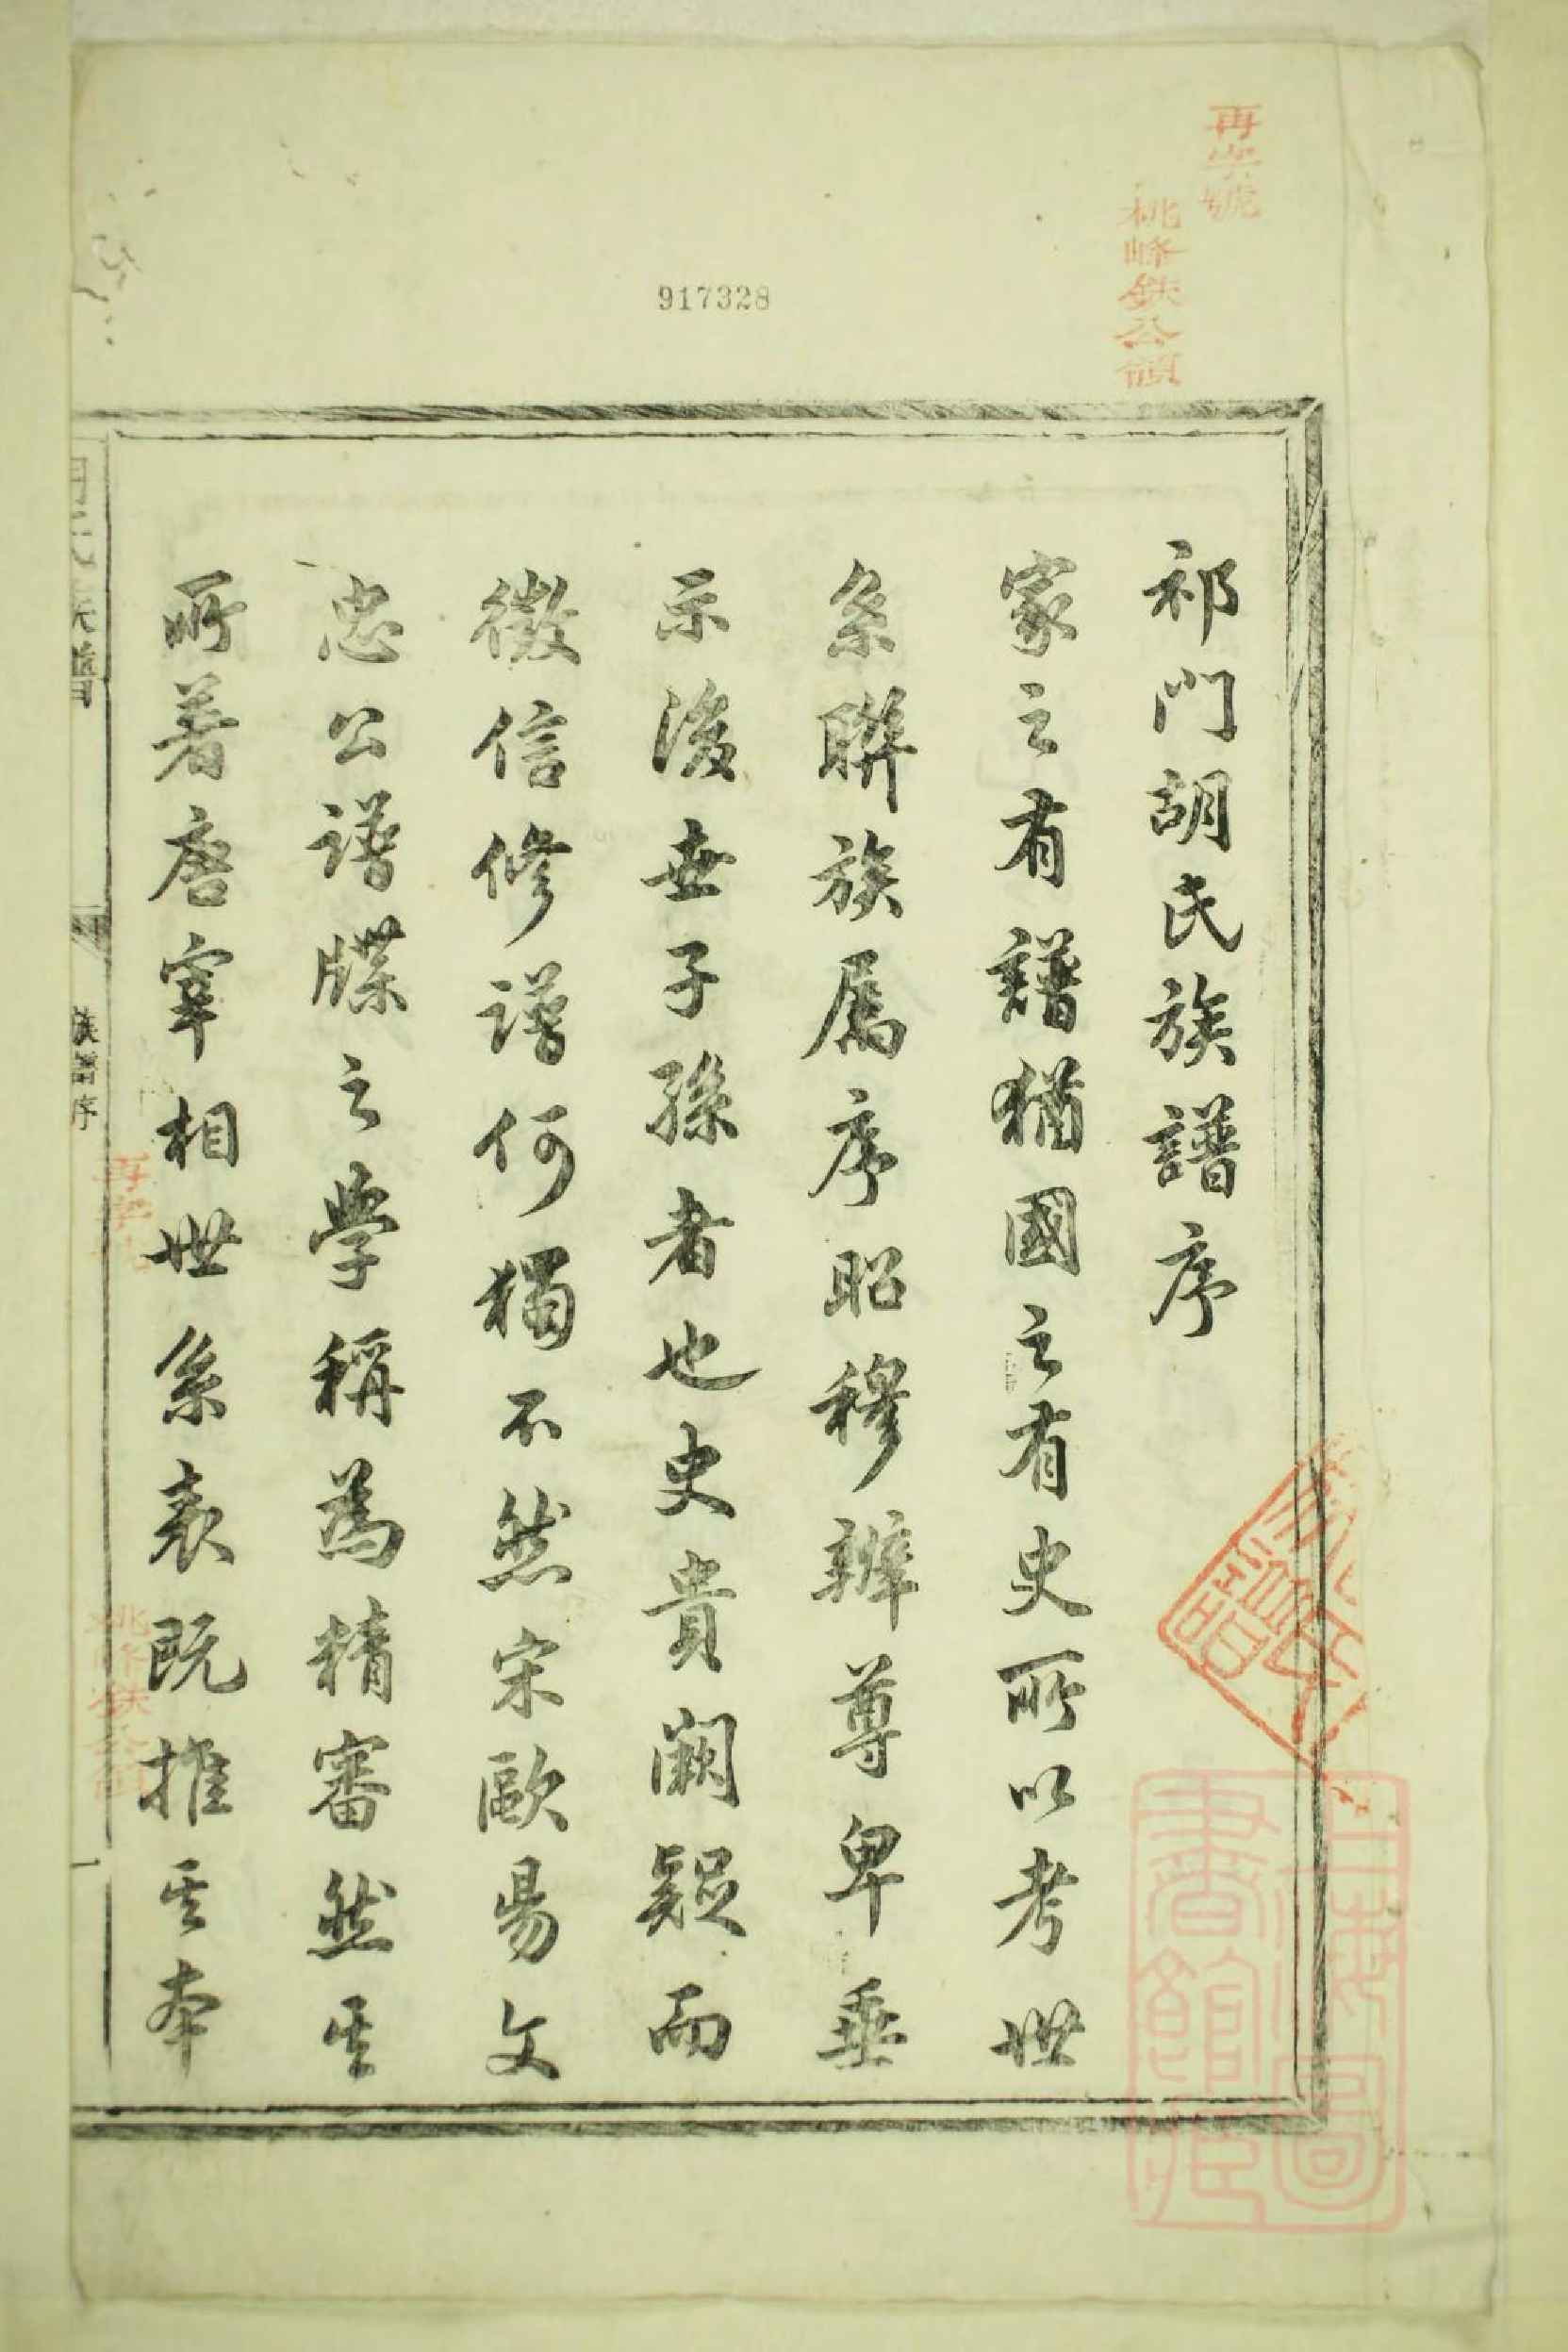 再字號
桃峰鉄公領
917328
祁門胡氏族譜序
家之有譜猶國之有史所以考世
系聯族属序昭穆辨尊卑垂
示後世子孫者也史貴闕疑而
徵信修譜何獨不然宋歐陽文
忠公譜牒之學稱為精審然其
所著唐宰相世系表既推其本
族譜序
一
上海圖
書館藏